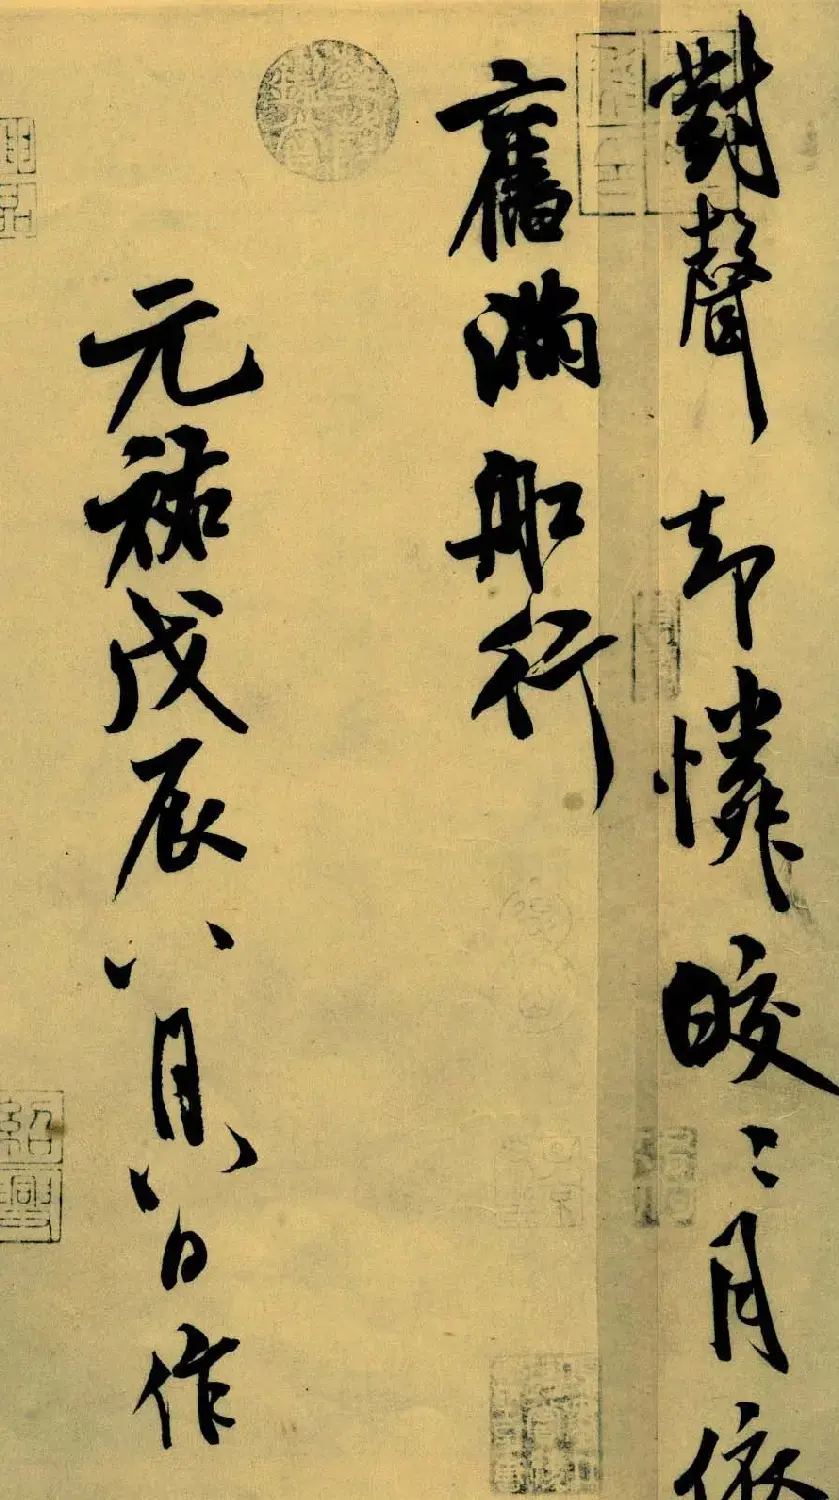 對聲却憐皎〻月依
舊滿船行
元祐戊辰八月八日作
紹興